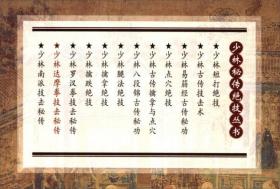 少林秘传绝技丛书
★少林短打绝技
★少林古传技击术
★少林易筋经古传秘功
★少林点穴绝技
★少林古传擒拿与点穴
★少林八段锦古传秘功
★少林腿法绝技
★少林擒拿绝技
★少林擒跌绝技
★少林罗汉拳技击秘传
★少林达摩拳技击秘传
★少林南派技击秘传